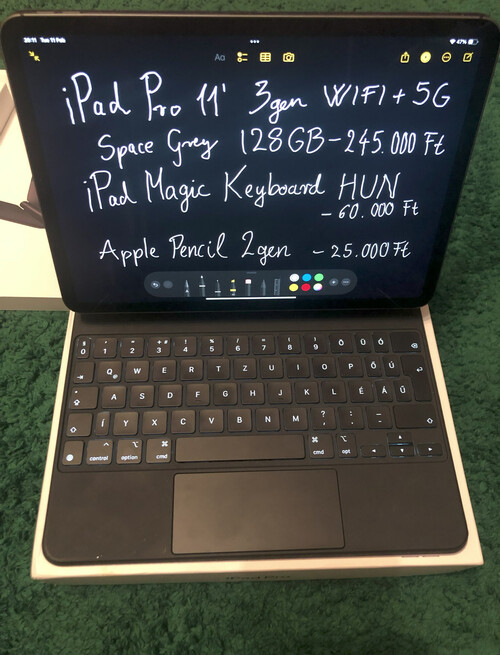 20:11 Tue 11 Feb
47%
Aa
iPad Pro 11' 3gen WIFI + 5G
Space Grey 128GB - 245.000 Ft
iPad Magic Keyboard HUN
- 60.000 Ft
Apple Pencil 2gen - 25.000 Ft
§ 0 ' 1 " 2 + 3 ! 4 % 5 / 6 = 7 ( 8 ) 9 Ö Ü Ó
Q W E R T Z U I O P Ő Ú
A S D F G H J K L É Á Ű
Í Y X C V B N M ? , : . _ -
control option cmd cmd opt
iPad Pro